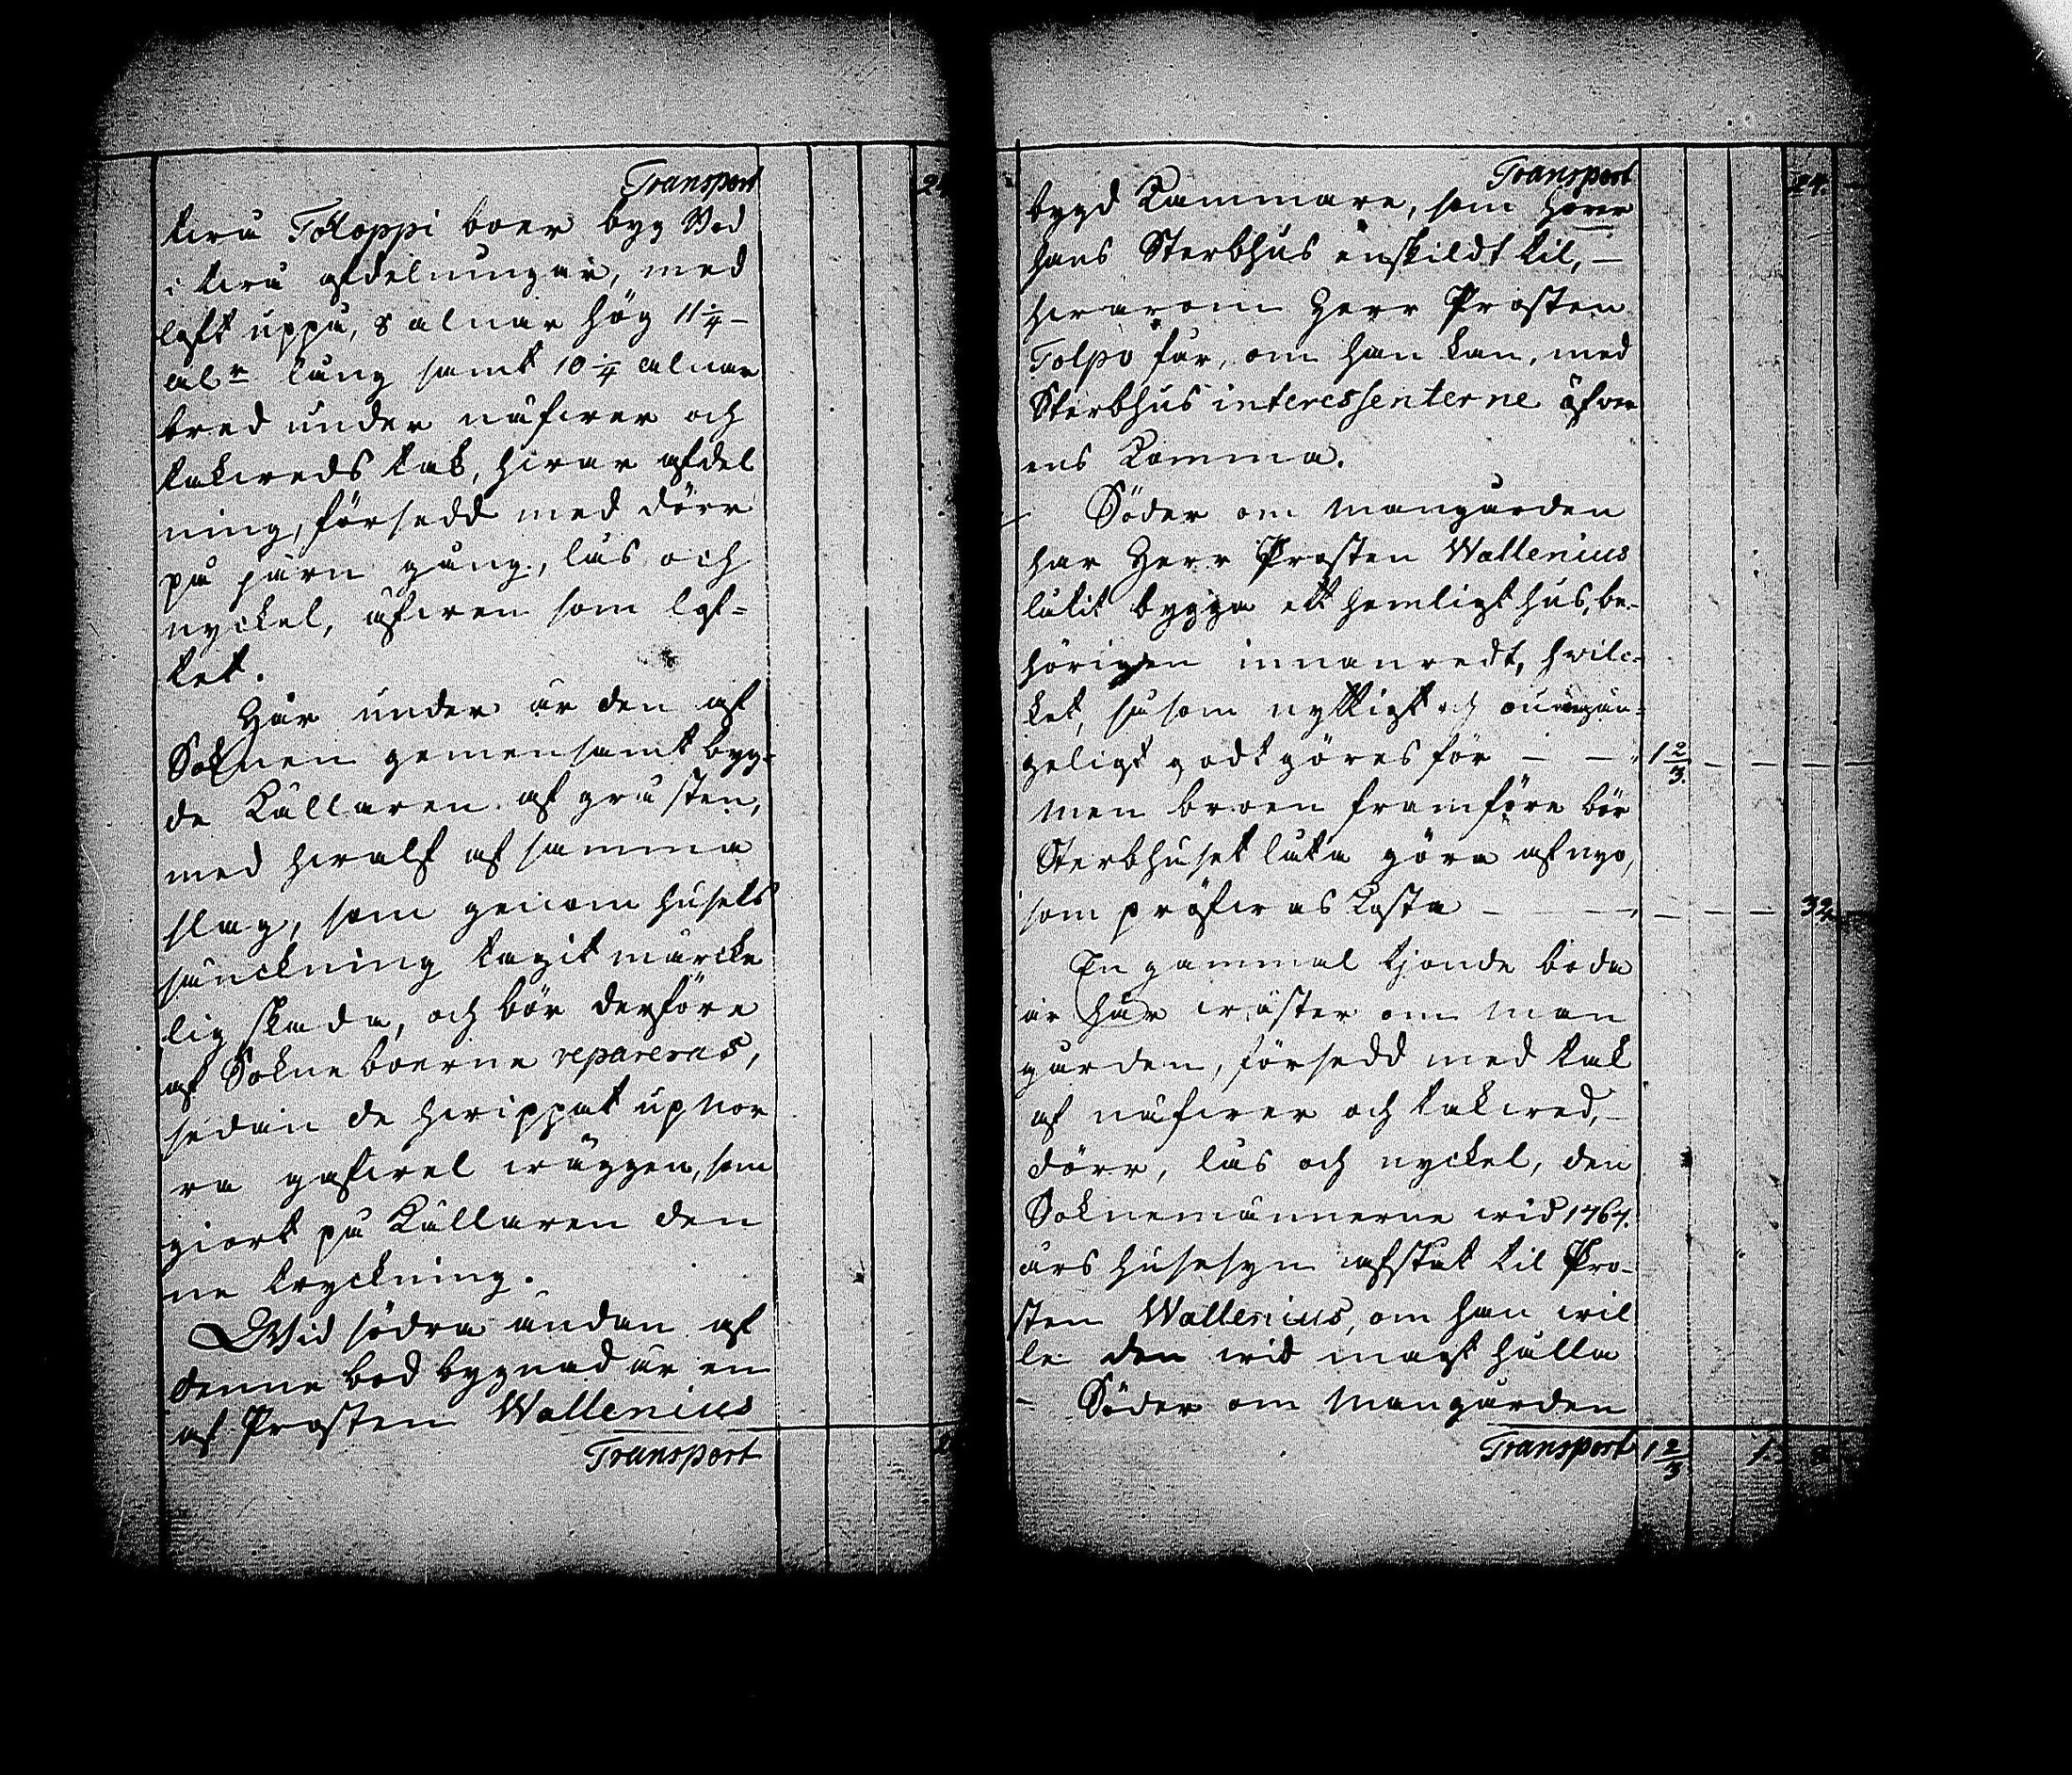 Transport 2
twå Tolloppi boer byg Bod
i twå afdelningar, med
loft uppå, 8 alnar hög 11 1/4
al:r lång samt 10 1/4 alnar
bred under näfwer och
takweds tak, hwar afdel
ning, försedd med dörr
på järn gång, lås och
nyckel, äfwen som lof=
tet.
Här under är den af
Soknen gemensamt byg=
de Källaren af gråsten,
med hwalf af samma
slag, som genom husets
sänckning tagit märcke
lig skada, och bör derföre
af Sokneboerne repareras,
sedan de hwippat up nor
ra gafwel wäggen, som
giort på Källaren den
ne tryckning.
Wid södra ändan af
denne bod bygnad är en
af Prosten Wallenius
Transport 2
Transport 24.
bygd Kammare, som hörer
hans Sterbhus enskildt til,
hwarom Herr Prosten
Tolpo får, om han kan, med
Sterbhus interessenterne öfwer
ens Komma.
Söder om mangården
har Herr Prosten Wallenius
låtit bygga ett hemligt hus, be-
hörigen innanredt, hwilc=
ket, såsom nyttigt och oumgän=
geligt godtgöres för — — 1 2/3. — — —
men broen framföre bör
Sterbhuset låta göra af nyo,
som pröfwas Kosta — — — — — — 32
En gammal tjonde boda
är här wäster om man
gården, försedd med tak
af näfwer och takwed,
dörr, lås och nyckel, den
Soknemännerne wid 1767.
års husesyn afstat til Pro-
sten Wallenius, om han wil
le den wid magt hålla
Söder om Mangården
Transport 1 2/3 1. 8